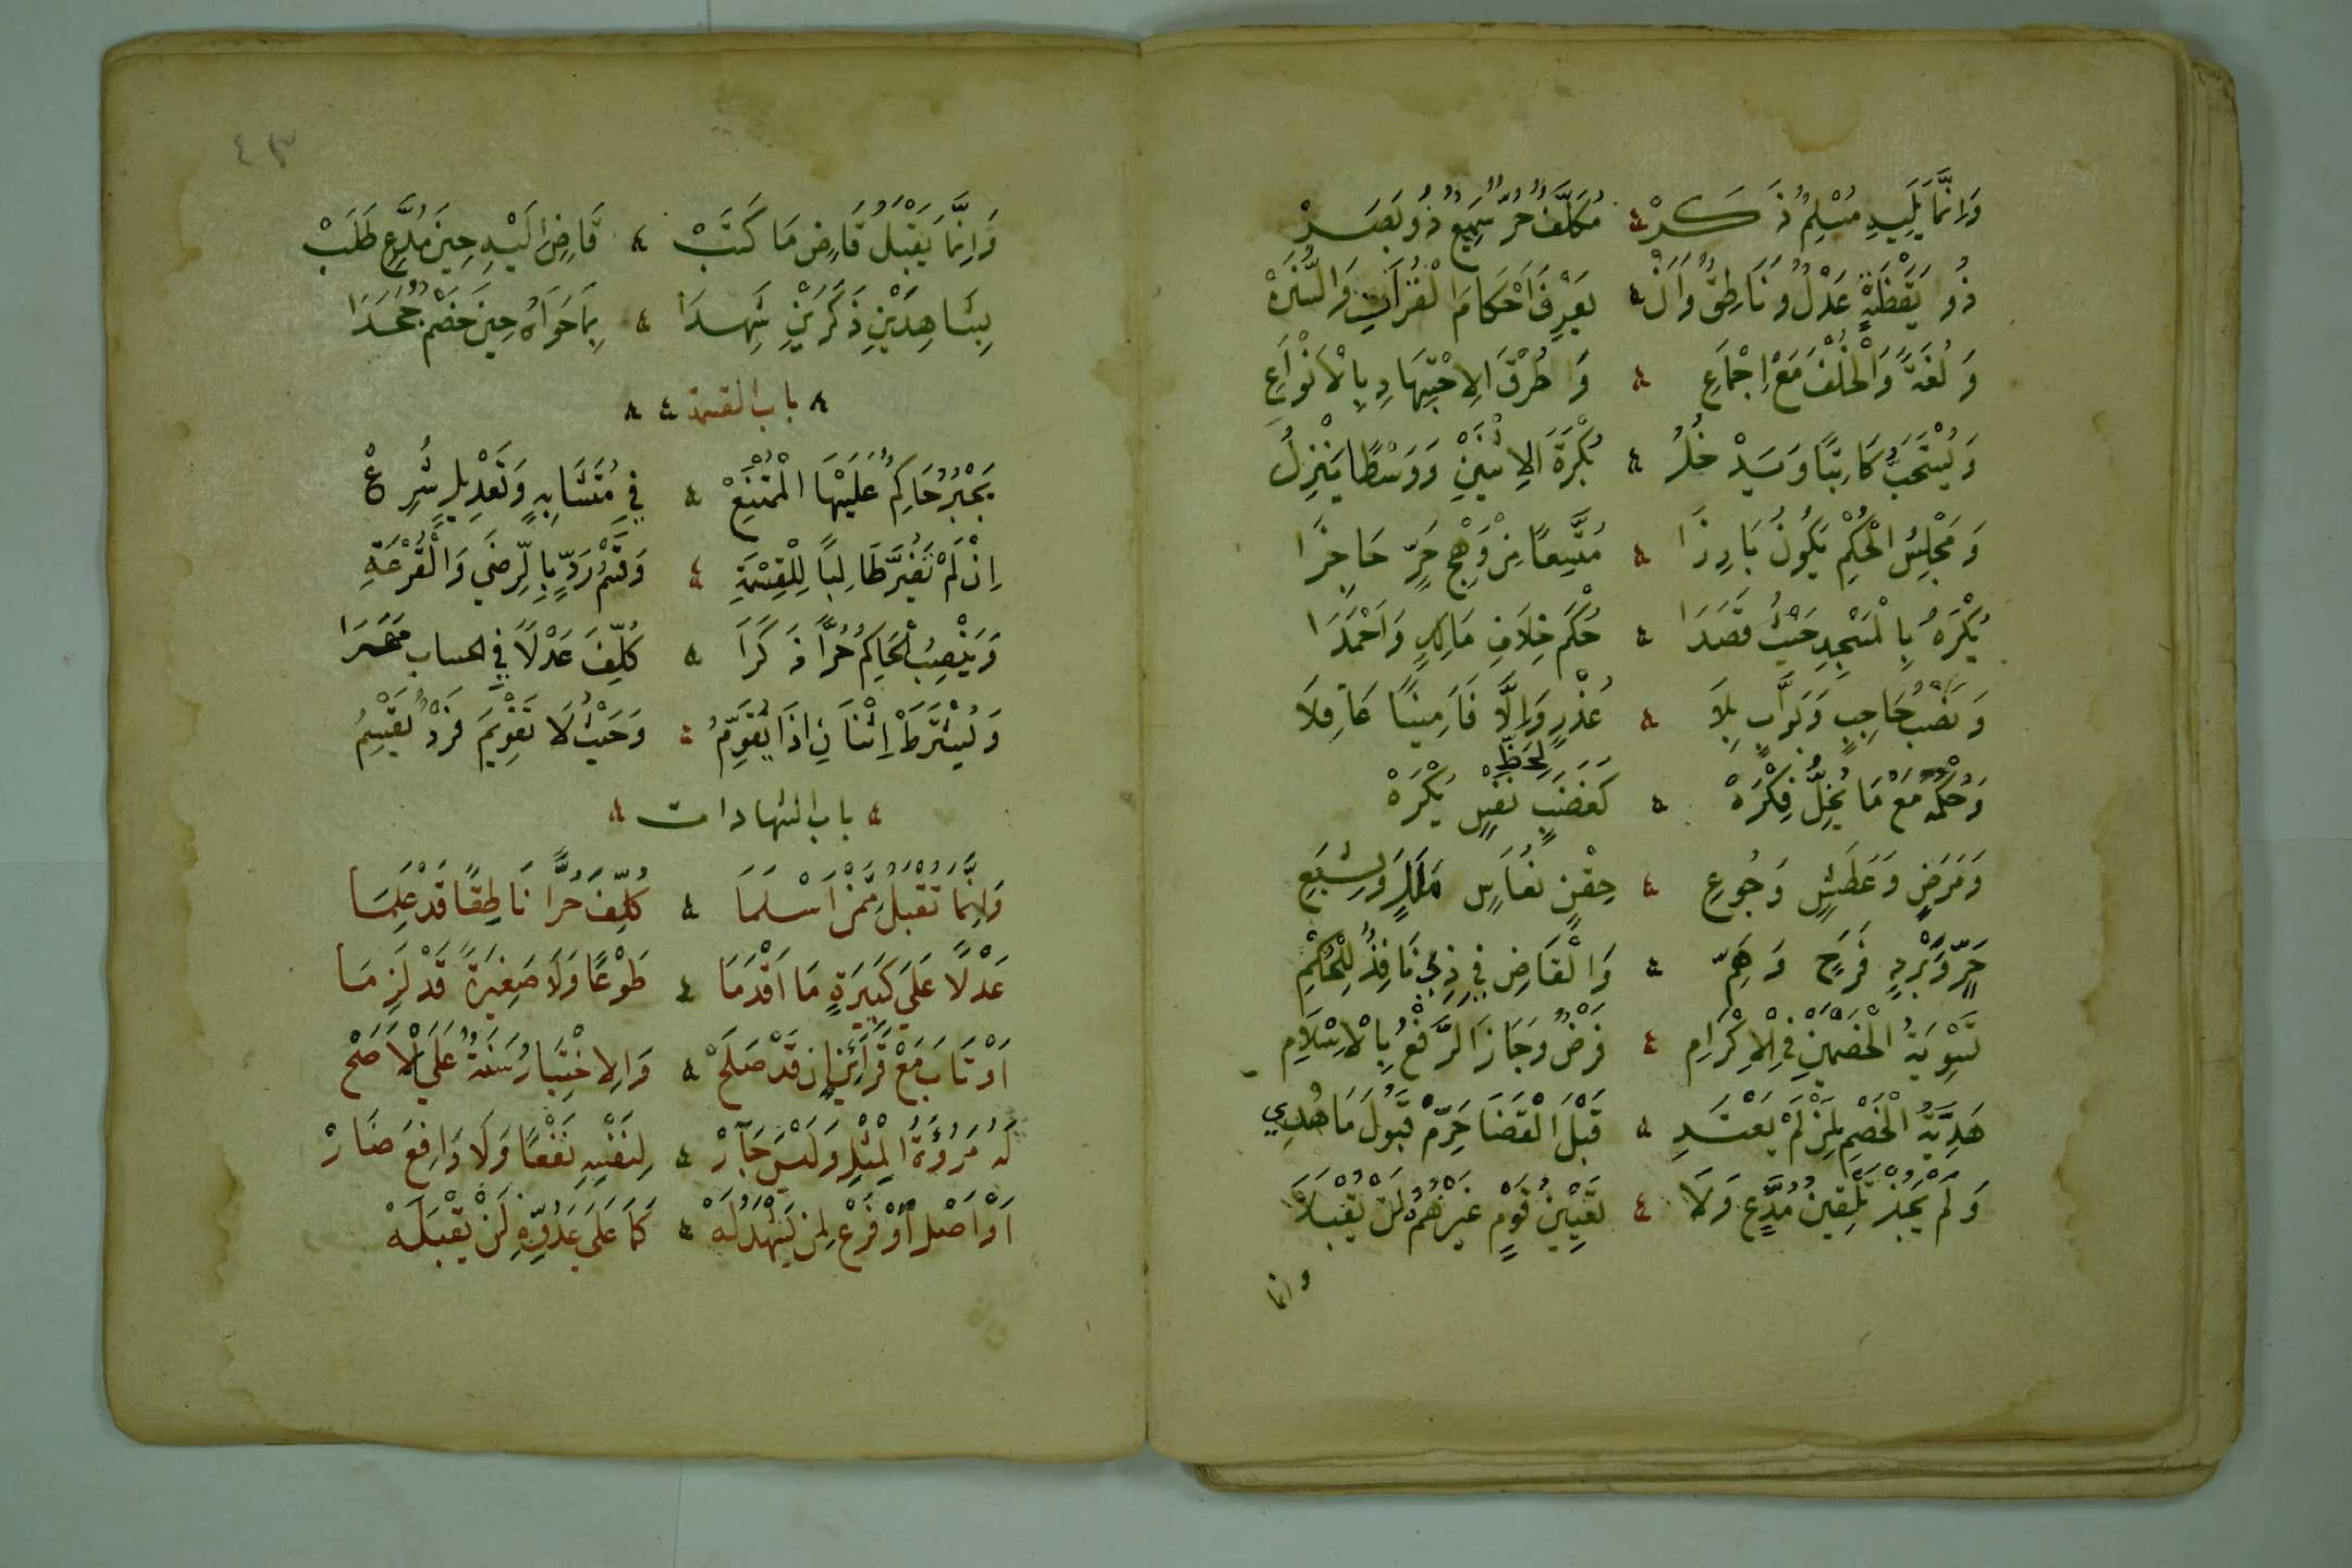 وَإِنَّمَا يَلِيهِ مُسْلِمٌ ذَكَرْ ۵ مُكَلَّفٌ حُرٌّ سَمِيعٌ ذُو بَصَرْ
ذُو يَقْظَةٍ عَدْلٌ وَنَاطِقٌ وَأَنْ ۵ يَعْرِفَ أَحْكَامَ الْقُرَآنِ وَالسُّنَنْ
وَلُغَةً وَالْخُلْفَ مَعْ إِجْمَاعِ ۵ وَطُرُقَ الِاجْتِهَادِ بِالْأَنْوَاعِ
وَيُسْتَحَبُّ كَاتِبًا وَيَدْخُلُ ۵ بُكْرَةَ الِاثْنَيْنِ وَوَسْطًا يَنْزِلُ
وَمَجْلِسُ الْحُكْمِ يَكُونُ بَارِزَا ۵ مُتَّسِعًا مِنْ وَهْجِ حَرٍّ حَاجِزَا
يُكْرَهُ بِالْمَسْجِدِ حَيْثُ قَصَدَا ۵ حُكْمٌ خِلَافِ مَالِكٍ وَأَحْمَدَا
وَنَصْبُ حَاجِبٍ وَبَوَّابٍ بِلَا ۵ عُذْرٍ وَإِلَّا فَأَمِينًا عَاقِلَا
وَحُكْمُهُ مَعْ مَا يُخِلُّ فِكْرَهْ ۵ كَغَضَبٍ لِحَظِّ نَفْسٍ يُكْرَهْ
وَمَرَضٍ وَعَطَشٍ وَجُوعِ ۵ حَقْنٍ نُعَاسٍ مَلَلٍ وَشِبَعِ
حَرٍّ وَبَرْدٍ فَرَحٍ وَهَمِّ ۵ وَالْقَاضِ فِي ذِي نَافِذٌ لِلْحُكْمِ
تَسْوِيَةُ الْخَصْمَيْنِ فِي الْإِكْرَامِ ۵ فَرْضٌ وَجَازَ الرَّفْعُ بِالْإِسْلَامِ
هَدِيَّةُ الْخَصْمِ لِمَنْ لَمْ يَعْتَدِ ۵ قَبْلَ الْقَضَا حَرِّمْ قَبُولَ مَا هُدِي
وَلَمْ يَجُزْ تَلْقِينُ مُدَّعٍ وَلَا ۵ تَعْيِينُ قَوْمٍ غَيْرَهُمْ لَنْ يُقْبَلَا
وانما
٤٣
وَإِنَّمَا يَقْبَلُ قَاضٍ مَا كَتَبْ ۸ قَاضٍ إِلَيْهِ حِينَ مُدَّعٍ طَلَبْ
بِشَاهِدَيْنِ ذَكَرَيْنِ شَهِدَا ۵ بِمَا حَوَاهُ حِينَ خَصْمٌ جَحَدَا
۸ باب القسمة ۵ ۸
يَجْبُرُ حَاكِمٌ عَلَيْهَا الْمُمْتَنِعْ ۵ فِي مُتَشَابِهٍ وَتَعْدِيلٍ شُرِعْ
إِنْ لَمْ تَضُرَّ طَالِبًا لِلْقِسْمَةِ ۵ وَقَسْمُ رَدٍّ بِالرِّضَى وَالْقُرْعَةِ
وَيَنْصِبُ الْحَاكِمُ حُرًّا ذَكَرَا ۵ كُلِّفَ عَدْلًا فِي الحساب مَهَرَا
وَيُشْتَرَطْ اثْنَانِ إِذَا يُقَوَّمُ ۵ وَحَيْثُ لَا تَقْوِيمَ فَرْدٌ يَقْسِمُ
۵ باب الشهادات ۵
وَإِنَّمَا تُقْبَلُ مِمَّنْ أَسْلَمَا ۵ كُلِّفَ حُرًّا نَاطِقًا قَدْ عُلِمَا
عَدْلًا عَلَى كَبِيرَةٍ مَا أَقْدَمَا ۵ طَوْعًا وَلَا صَغِيرَةً قَدْ لَزِمَا
أَوْ تَابَ مَعْ قَرَائِنٍ إِنْ قَدْ صَلَحْ ۵ وَالِاخْتِبَارُ سَنَةٌ عَلَى الْأَصَحْ
لَهُ مُرُوءَةُ الْمِثْلِ وَلَيْسَ جَارْ ۵ لِنَفْسِهِ نَفْعًا وَلَا دَافِعَ ضَارْ
أَوْ أَصْلٌ أَوْ فَرْعٌ لِمَنْ يَشْهَدُ لَهْ ۵ كَمَا عَلَى عَدُوِّهِ لَنْ يَقْبَلَهْ